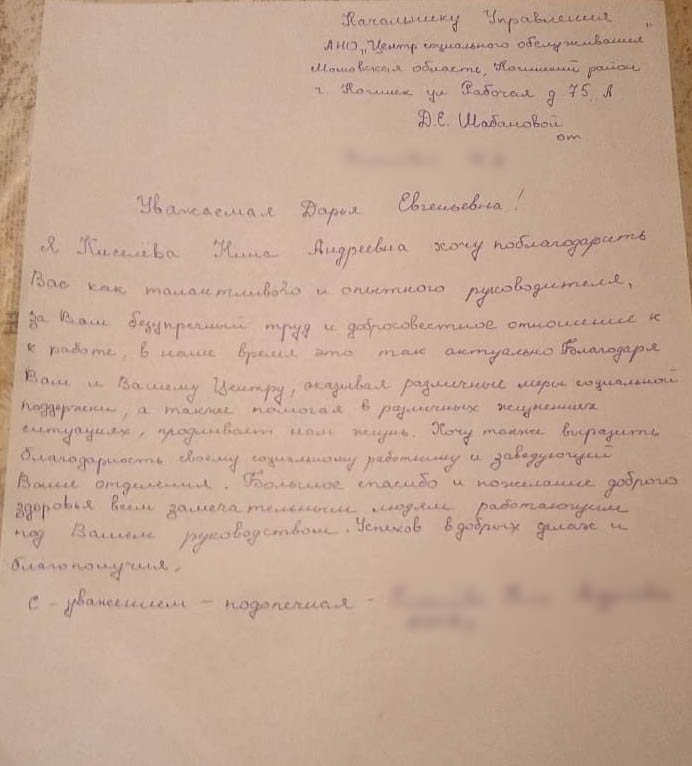 Начальнику Управления
АНО „Центр социального обслуживания"
Московская область, Ногинский район
г. Ногинск ул Рабочая д 75 А
Д.Е. Шабановой
от
Уважаемая Дарья Евгеньевна!
Я Киселёва Нина Андреевна хочу поблагодарить
Вас как талантливого и опытного руководителя,
за Вам безупречный труд и добросовестное отношение к
к работе, в наше время это так актуально Благодаря
Вам и Вашему Центру, оказывая различные меры социальной
поддержки, а также помогая в различных жизненных
ситуациях, продливает нам жизнь. Хочу также выразить
благодарность своему социальному работнику и заведующий
Ваше отделения. Большое спасибо и пожелание доброго
здоровья всем замечательным людям работающим
под Вашем руководством. Успехов в добрых делах и
благополучия.
С - уважением - подопечная -